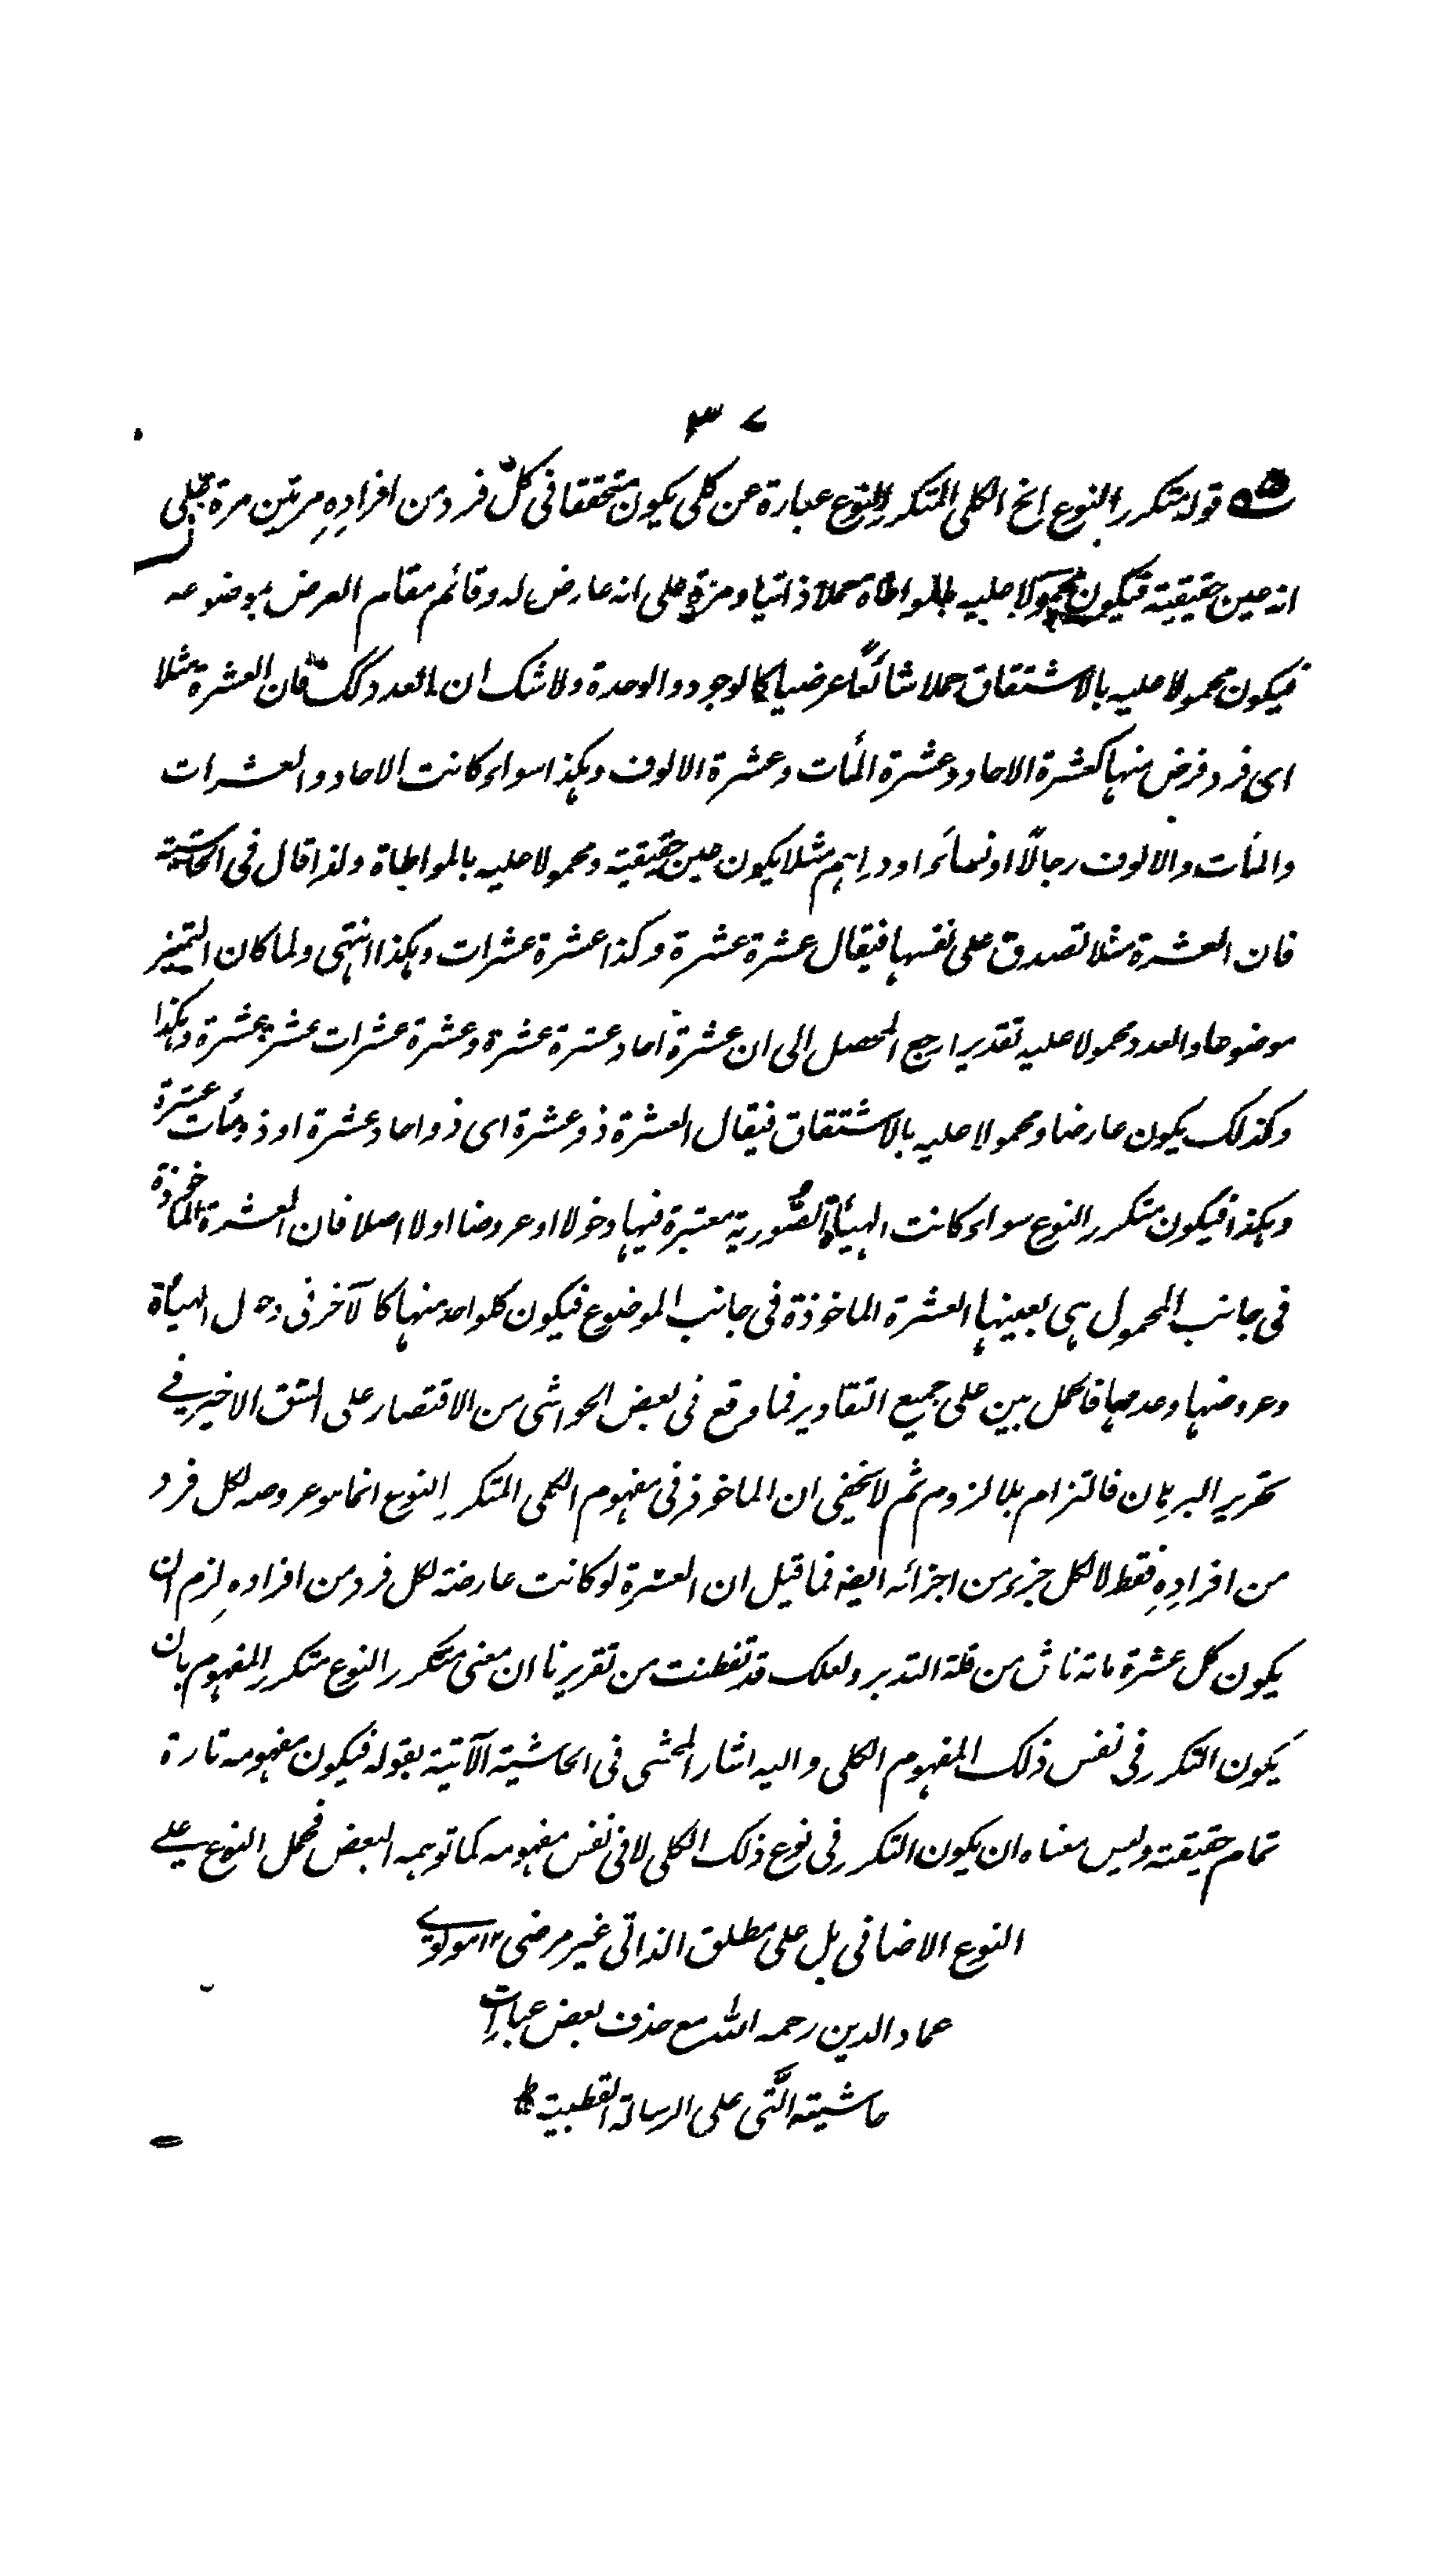 ٣٧
قوله متكرر النوع الخ الكلى المتكرر النوع عبارة عن كلى يكون متحققا فى كل فرد من افراده مرتين مرة على
انه عين حقيقته فيكون محمولا عليه بالمواطاة حملا ذاتيا ومرة على انه عارض له وقائم مقام العرض بموضوعه
فيكون محمولا عليه بالاشتقاق حملا شائعًا عرضيا كالوجود والوحدة ولا شك ان العدد كك فان العشرة مثلا
اى فرد فرض منها كعشرة الاحاد وعشرة المأت وعشرة الالوف وهكذا سواء كانت الاحاد والعشرات
والمأت والالوف رجالًا او نساءً او دراهم مثلا يكون عين حقيقته ومحمولا عليه بالمواطاة ولذا قال فى الحاشية
فان العشرة مثلا تصدق على نفسها فيقال عشرة عشرة وكذا عشرة عشرات وهكذا انتهى ولما كان التميز
موضوعا والعدد محمولا عليه تقديرا رجع المحصل الى ان عشرة احاد عشرة عشرة وعشرة عشرات عشرة عشرة وهكذا
وكذلك يكون عارضا ومحمولا عليه بالاشتقاق فيقال العشرة ذو عشرة اى ذو احاد عشرة او ذو مأت عشرة
وهكذا فيكون متكرر النوع سواء كانت الهيأة الصُّورية معتبرة فيها دخولا او عروضا اولا اصلا فان العشرة الماخوذة
فى جانب المحمول هى بعينها العشرة الماخوذة فى جانب الموضوع فيكون كلواحد منها كالآخر فى دخول الهيأة
وعروضها وعدمها فالحمل بين على جميع التقادير فما وقع فى بعض الحواشى من الاقتصار على الشق الاخير فے
تقرير البرهان فالتزام بلا لزوم ثم لا يخفى ان الماخوذ فى مفهوم الكلى المتكرر النوع انما هو عروضه لكل فرد
من افراده فقط لا لكل جزء من اجزائه ايضه فما قيل ان العشرة لو كانت عارضة لكل فرد من افراده لزم ان
يكون كل عشرة مائة ناش من قلة التدبر ولعلك قد تفطنت من تقريرنا ان معنى متكرر النوع متكرر المفهوم بان
يكون التكرر فى نفس ذلك المفهوم الكلى واليه اشار المحشى فى الحاشية الآتية بقوله فيكون مفهومه تارة
تمام حقيقته وليس معناه ان يكون التكرر فى نوع ذلك الكلى لا فى نفس مفهومه كما توهمه البعض فحمل النوع علے
النوع الاضافى بل على مطلق الذاتى غير مرضى ١٢ مولوے
عماد الدين رحمه الله مع حذف بعض عبارات
حاشيته الَّتى على الرسالة القطبية